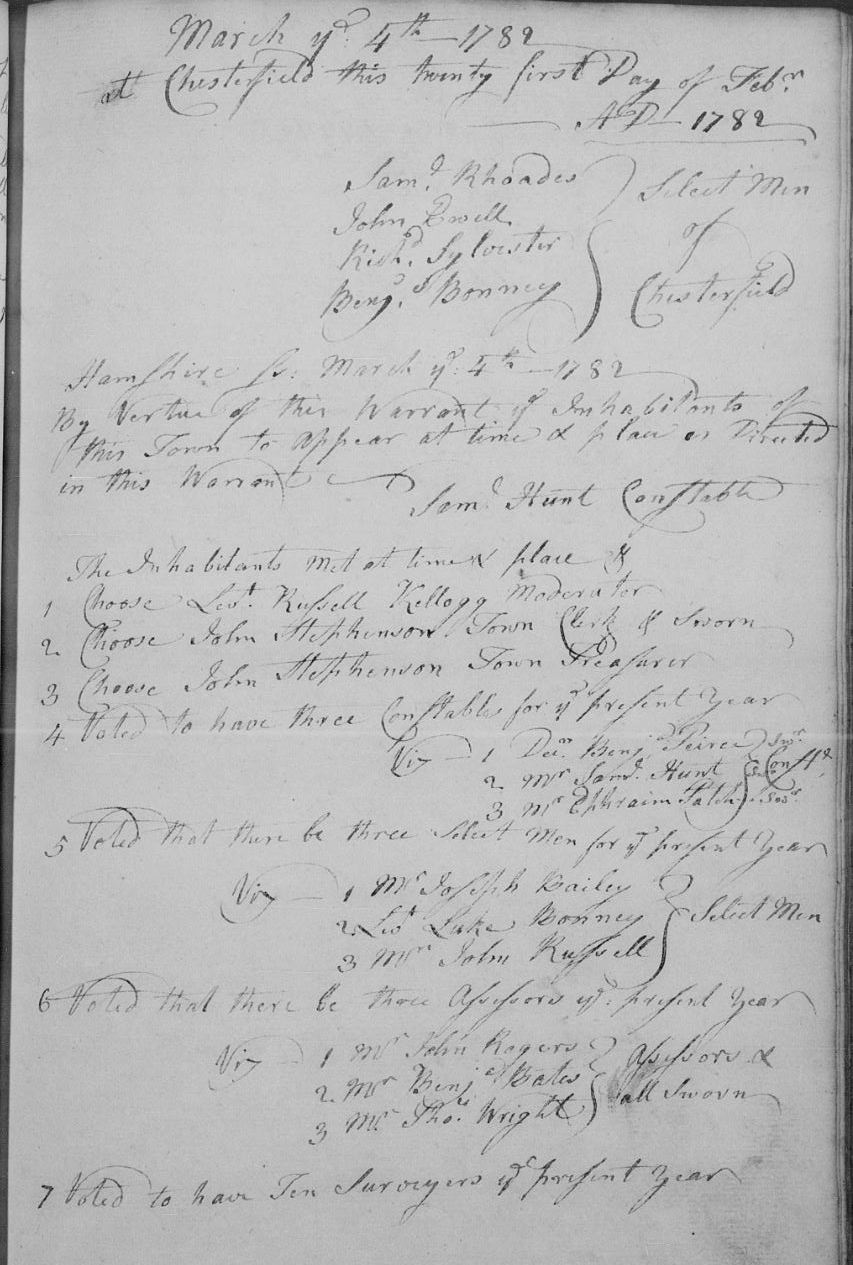 March yᵉ 4th 1782
at Chesterfield this twenty first Day of Febr
AD 1782
Samˡ Rhoades
John Ewell
Richᵈ Sylvester
Benjᵃ Bonney
Select Men
of
Chesterfield
Hamshire ss: March yᵉ: 4th 1782
By Vertue of this Warrant yᵉ Inhabitants of
this Town to appear at time & place as Directed
in this Warrant
Samˡ Hunt Constable
The Inhabitants Met at time & place &
1 Choose Levt. Russell Kellogg Moderator
2 Choose John Stephenson Town Clerk & Sworn
3 Choose John Stephenson Town Treasurer
4 Voted to have three Constables for yᵉ present Year
Viz 1 Deᵃⁿ Benjᵃ Peirce
2 Mr Samˡ Hunt
3 Mr Ephraim Patch
Constˢ
5 Voted that there be three Select Men for yᵉ present Year
Viz 1 Mr Joseph Bailey
2 Levt Luke Bonney
3 Mr John Russell
Select Men
6 Voted that there be three Assessors yᵉ: present Year
Viz 1 Mr John Rogers
2 Mr Benjᵃ Bates
3 Mr Thoˢ Wright
Assessors &
all Sworn
7 Voted to have Ten Surveyers yᵉ present Year